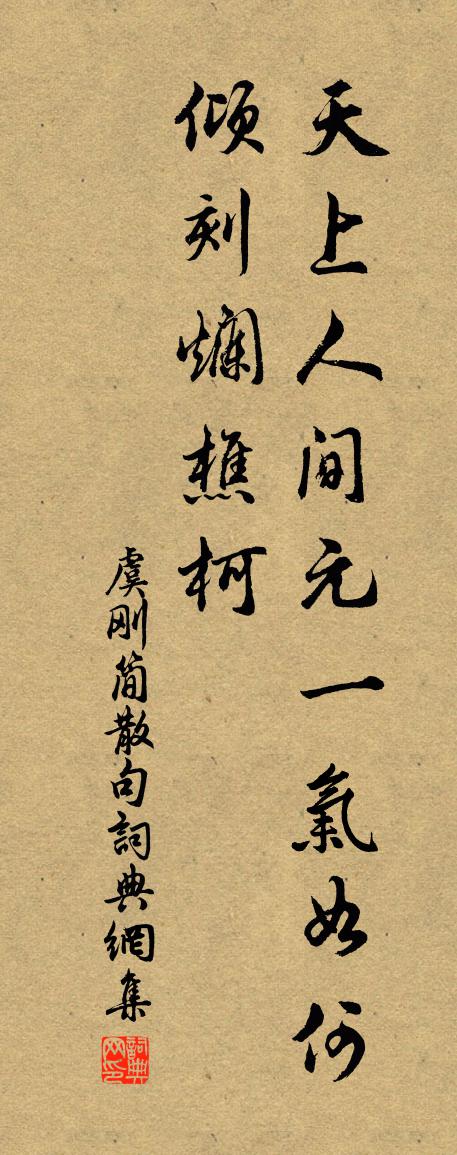 天上人间元一氣如何
倾刻爛樵柯
虞刚简散句詞典網集
詞典网印